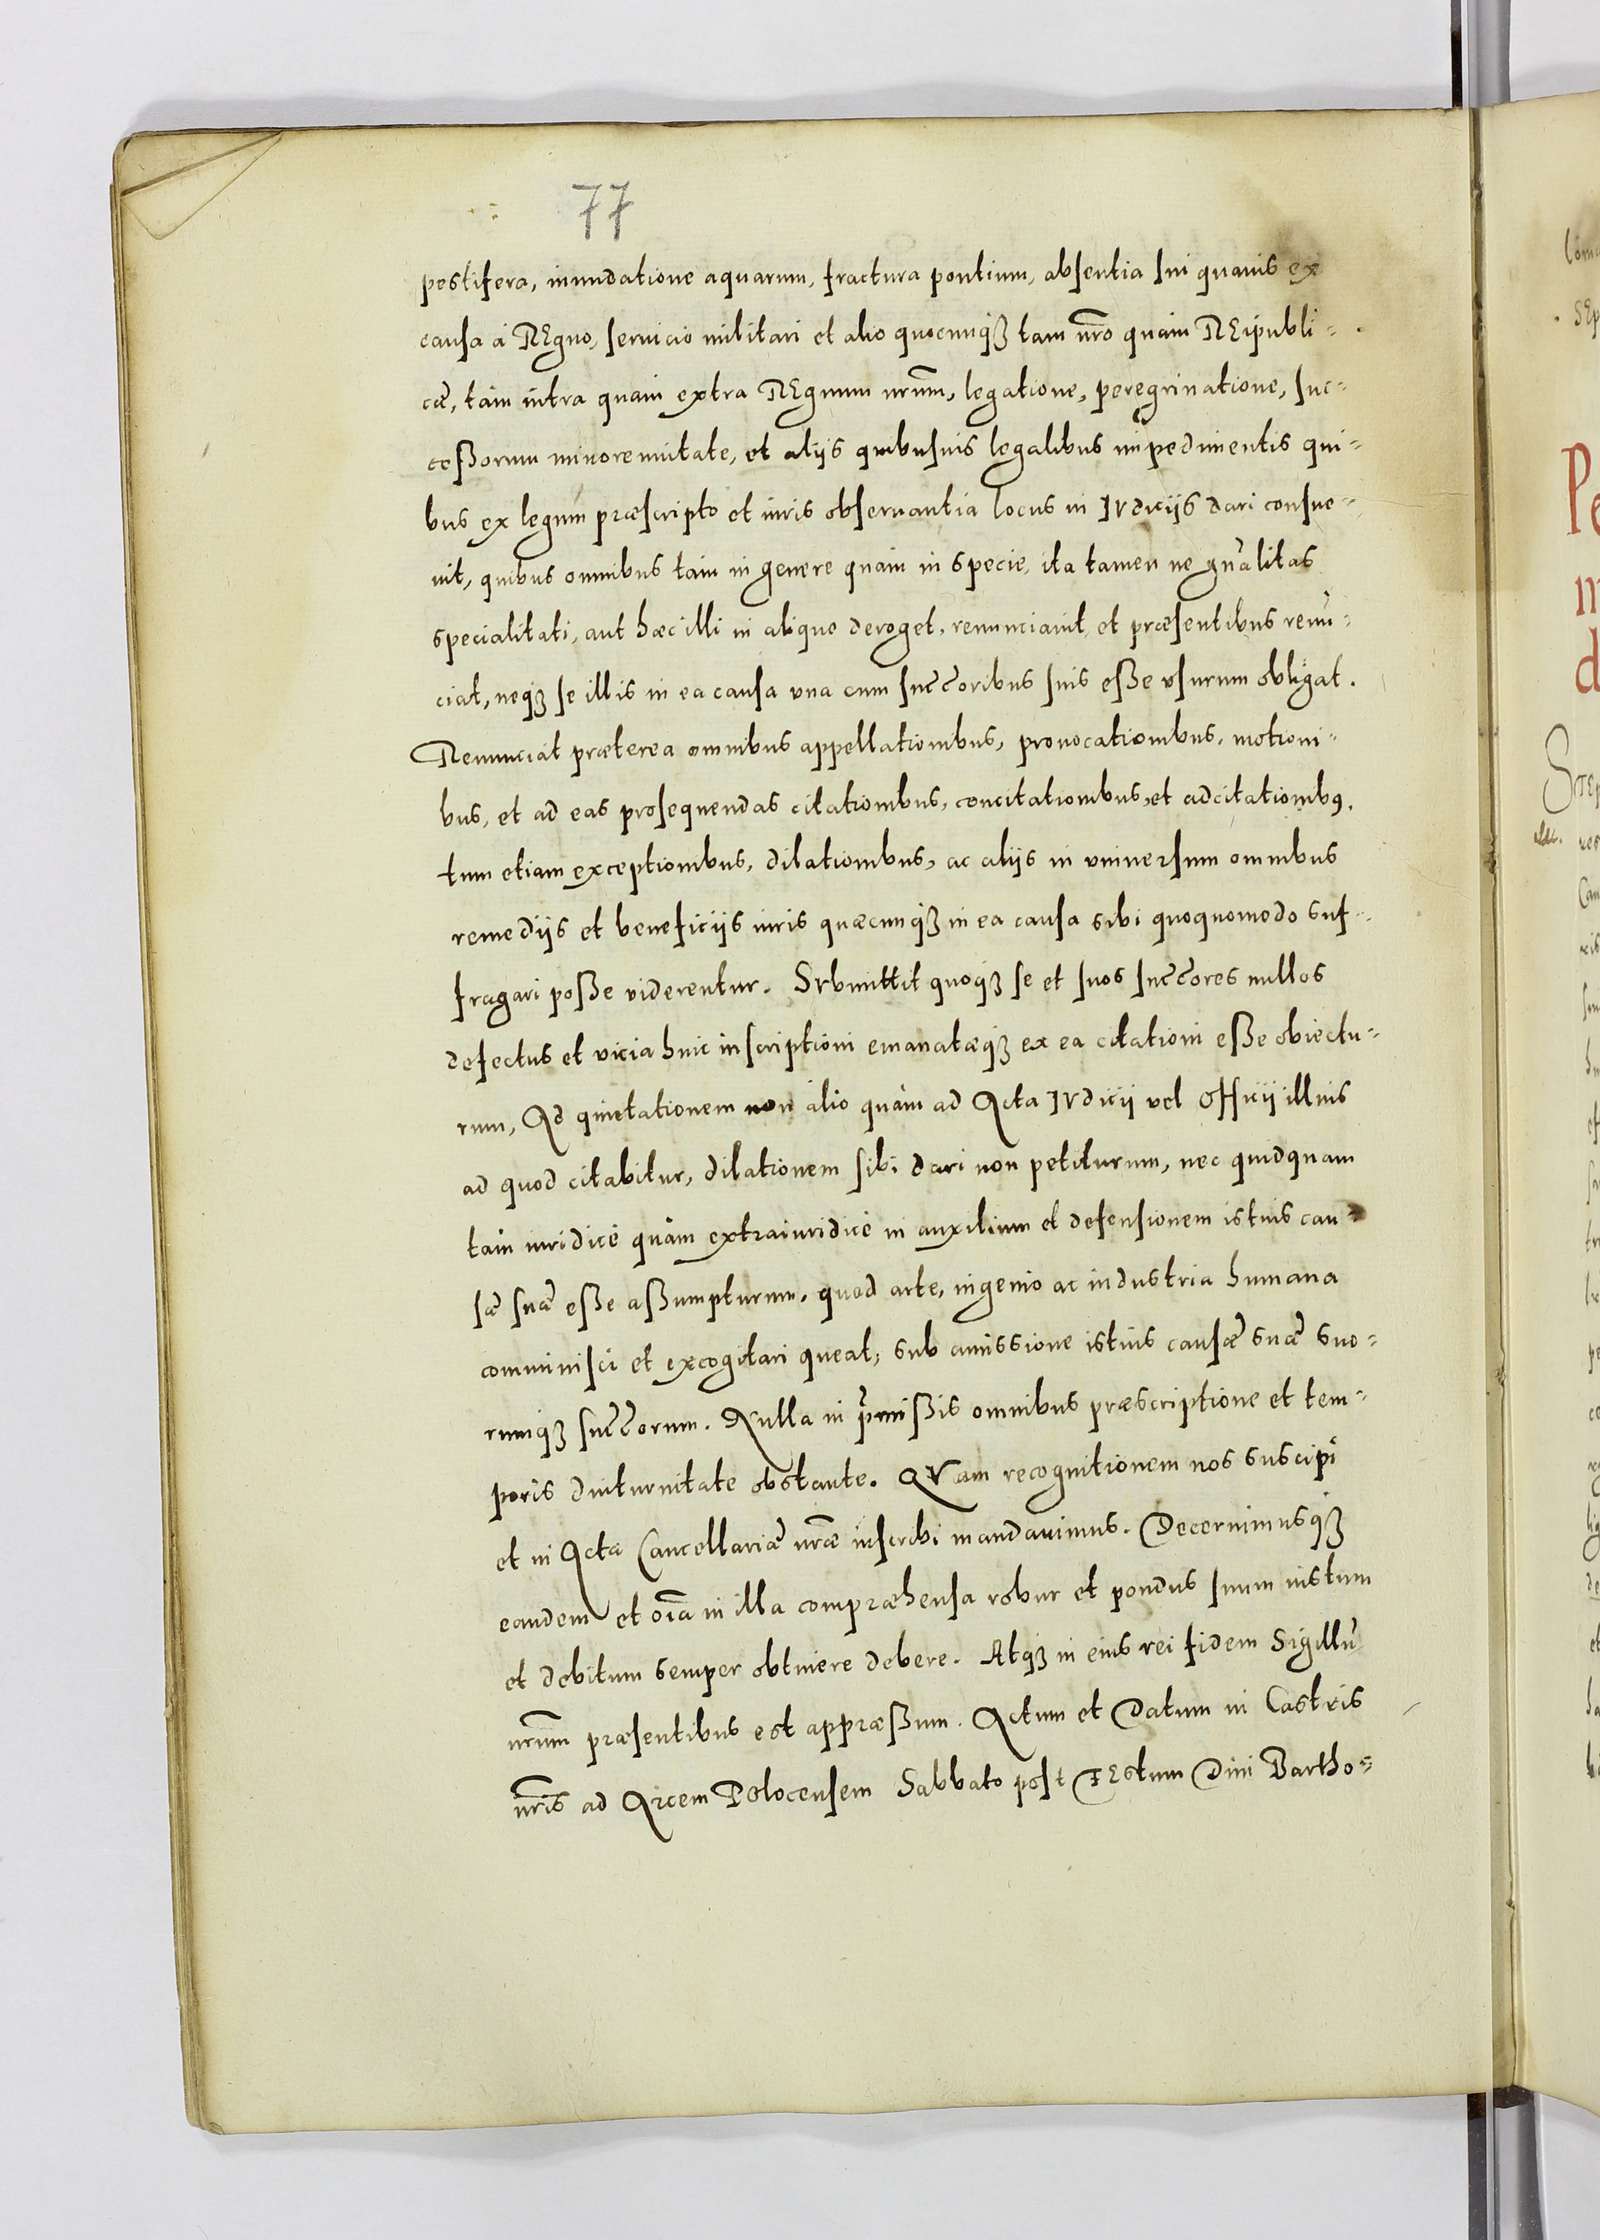 77
pestifera, inundatione aquarum, fractura pontium, absentia sui quavis ex
causa à REgno, servicio militari et alio quocunqȝ tam nr̄o quàm REipubli-
cæ, tàm intra quàm extra REgnum nr̄um, legatione, peregrinatione, suc-
ceßorum minorennitate, et alijs quibusuis legalibus impedimentis qui-
bus ex legum præscripto et iuris obseruantia locus in IVdicijs dari consue-
uit, quibus omnibus tàm in genere quàm in specie, ita tamen ne gn̄alitas
specialitati, aut hæc illi in aliquo deroget, renunciauit et præsentibus renū-
ciat, neqȝ se illis in ea causa vna cum succ̄oribus suis eße vsurum obligat.
Renunciat præterea omnibus appellationibus, prouocationibus, motioni-
bus, et ad eas prosequendas citationibus, concitationibus, et adcitationibꝰ.
tum etiam exceptionibus, dilationibus, ac alijs in vniuersum omnibus
remedijs et beneficijs iuris quæcunqȝ in ea causa sibi quoquomodo suf-
fragari poße viderentur. SVbmittit quoqȝ se et suos succ̄ores nullos
defectus et vicia huic inscriptioni emanatæqȝ ex ea citationi eße obiectu-
rum, Ad quietationem non alio quàm ad Acta IVdicij vel officij illius
ad quod citabitur, dilationem sibi dari non petiturum, nec quidquam
tàm iuridicè quàm extraiuridicè in auxilium et defensionem istius cau-
sæ suæ eße aßumpturum, quod arte, ingenio ac industria humana
comminisci et excogitari queat, sub amissione istius causæ suæ suo-
rumqȝ succ̄orum. Nulla in p̄mißis omnibus præscriptione et tem-
poris diuturnitate obstante. QVam recognitionem nos suscipi
et in Acta Cancellariæ nr̄æ inscribi mandauimus. Decernimusqȝ
eandem et oīa in illa compræhensa robur et pondus suum iustum
et debitum semper obtinere debere. Atqȝ in eius rei fidem Sigillū
nr̄um præsentibus est appræßum. Actum et Datum in Castris
nr̄is ad Arcem Polocensem Sabbato post FEstum Diui Bartho-